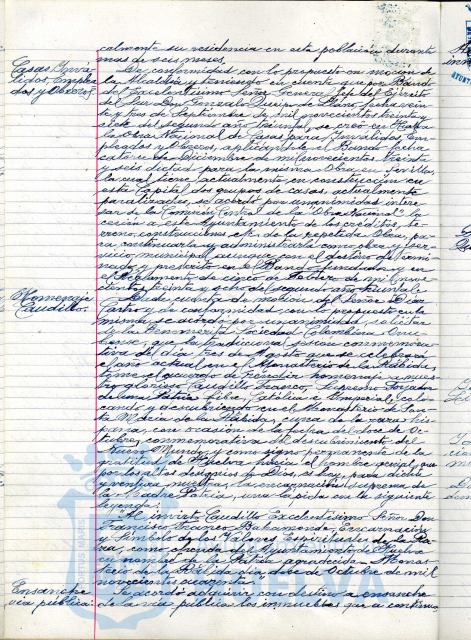 calmente su residencia en esta población durante
mas de seis meses.
Casas Invá-
lidos, Emplea-
dos y Obreros.
De conformidad con lo propuesto en mocion de
la Alcaldía y teniendo en cuenta que por Bando
del Excelentísimo Señor General Jefe del Ejército
del Sur Don Gonzalo Queipo de Llano, fecha vein-
te y tres de Septiembre de mil novecientos treinta y
siete del segundo año triunfal, se creó en Huelva
la Obra Nacional de Casas para Inválidos, Em-
pleados y Obreros, aplicándole el Bando fecha
catorce de Diciembre de mil novecientos treinta
y seis dictado para la misma Obra en Sevilla
la cual tiene actualmente en construcción en
esta Capital dos grupos de casas, actualmente
paralizadas, se acordó por unanimidad intere-
sar de la Comisión Central de la Obra Nacional la
cesión a este Ayuntamiento de los créditos, te-
rrenos, construcciones de la repetida Obra, pa-
ra construirla y administrarla como obra y ser-
vicio municipal aunque con el destino determi-
nado y prescrito en el Bando fundador y en
el Reglamento de cinco de de mil nove-
cientos treinta y ocho del segundo año triunfal.
Homenaje
Caudillo.
Dada cuenta de mocion del Señor Diaz
Castro y de conformidad con lo propuesto en la
misma, se acordó por unanimidad, solicitar
de la Benemérita Sociedad Colombina Onu-
bense, que la tradicional sesión conmemora-
tiva del día tres de Agosto que se celebrará
el año actual en el Monasterio de la Rábida,
tome el acuerdo de rendir homenaje a nues-
tro glorioso Caudillo Franco, Supremo Forjador
de una Patria Libre, Católica e Imperial, colo-
cando y descubriendo en el Monasterio de San-
ta María de la Rábida, cuna de la raza his-
pana, con ocasión de la fecha del doce de Oc-
tubre, conmemorativa del descubrimiento del
Nuevo Mundo, y como signo permanente de la
gratitud de Huelva hacia el hombre genial, que
por los altos designios de Dios, es hoy, para dicha
y ventura nuestra, la encarnación suprema de
la Madre Patria, una lápida con la siguiente
leyenda:
"Al invicto Caudillo Excelentísimo Señor Don
Francisco Franco Bahamonde, Encarnación
y Símbolo de los Valores Espirituales de la Ra-
za, como ofrenda del Ayuntamiento de Huelva
en nombre de la Patria agradecida. Monas-
terio de la Rábida a doce de Octubre de mil
novecientos cuarenta."
Ensanche
vía pública.
Se acordó adquirir con destino a ensanche
de la vía pública los inmuebles que a continua-